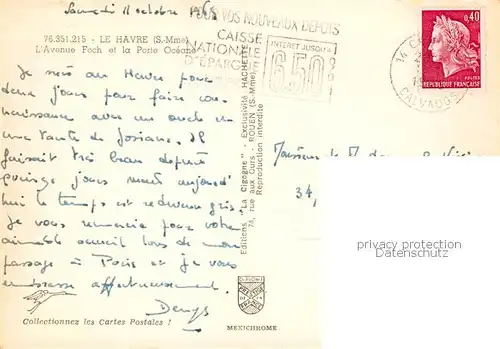 Samedi 11 octobre 1969
POUR VOS NOUVEAUX DEPOTS
CAISSE
NATIONALE
D'ÉPARGNE
INTERET JUSQU'A
6.50%
14 C
CALVADOS
0,40
POSTES
REPUBLIQUE FRANÇAISE
76.351.215 - LE HAVRE (S.-Mme)
L'Avenue Foch et la Porte Océane
Je suis au Havre pour
deux jours pour faire con-
naissance avec un oncle et
une tante de Josiane. Il
faisait très beau depuis
quinze jours mais aujourd'
hui le temps est redevenu gris.
Je vous remercie pour votre
aimable accueil lors de mon
passage à Paris et je vous
embrasse affectueusement.
Denys
Editions "La Cigogne" - Exclusivité HACHETTE
74, rue aux Ours - ROUEN (S.-Mme)
Reproduction interdite
Monsieur et Madame
34,
privacy protection
Datenschutz AK-Ansichtskarten.de
Collectionnez les Cartes Postales !
MEXICHROME